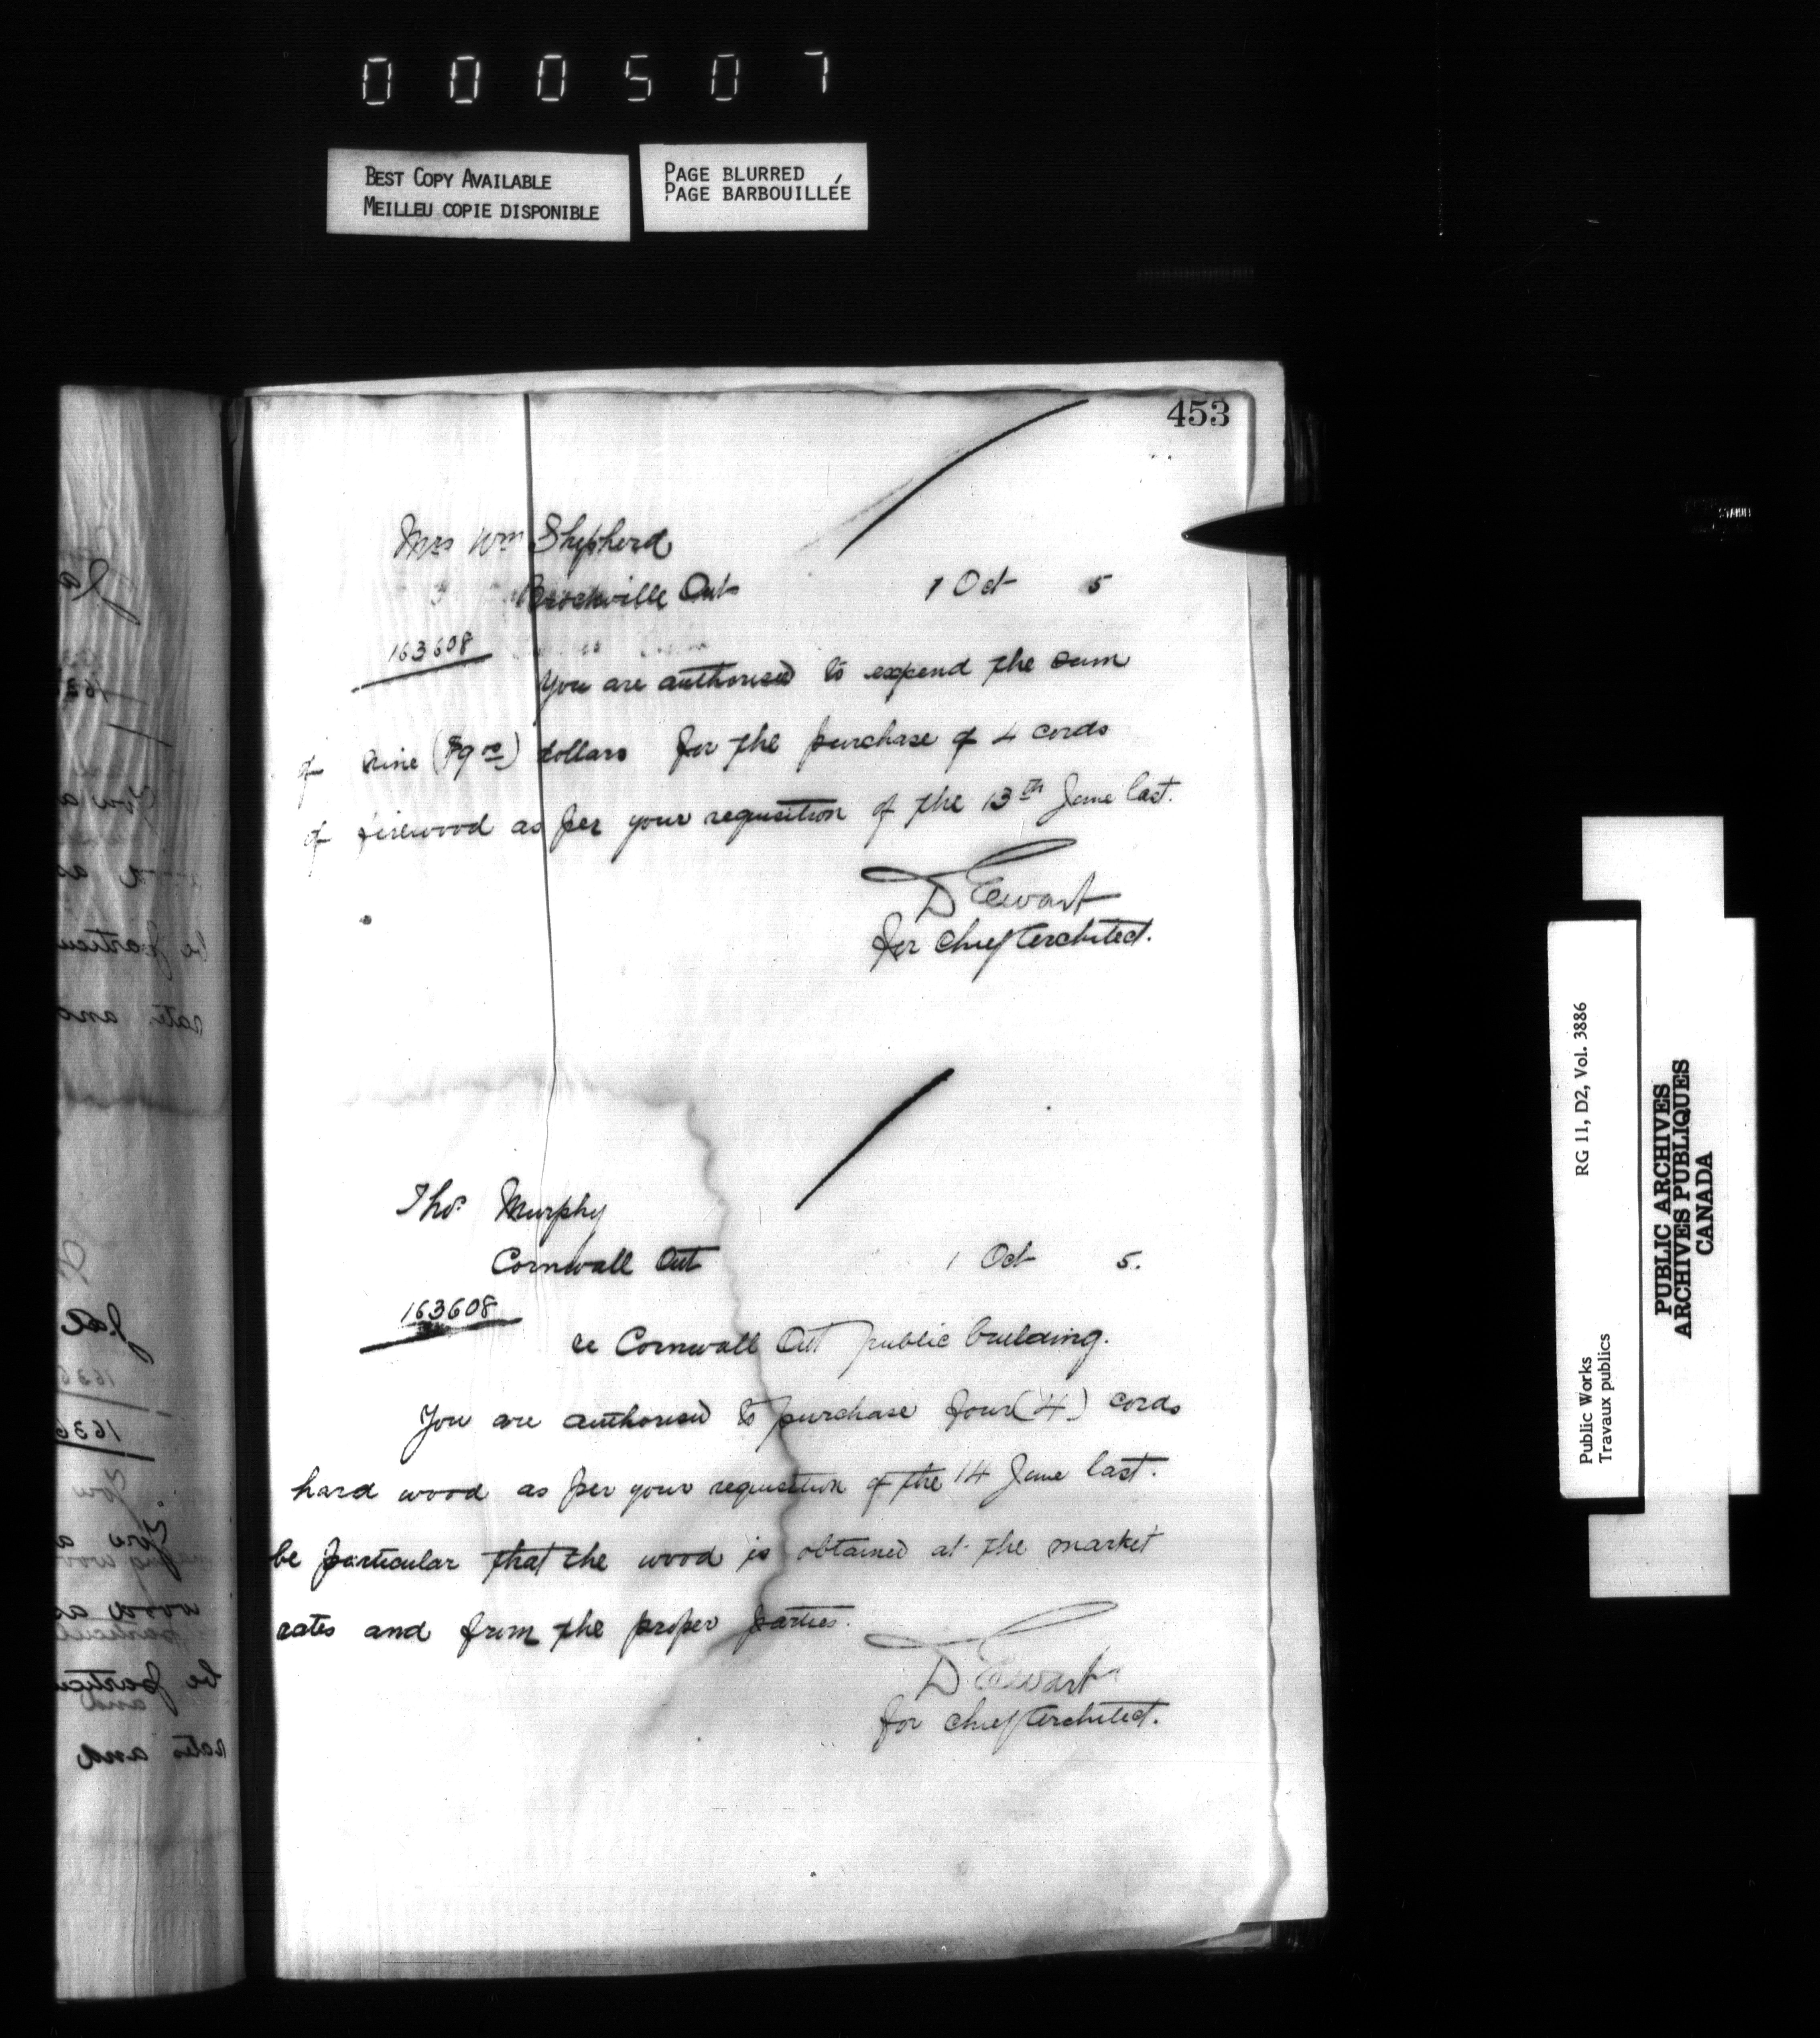 000507
BEST COPY AVAILABLE
MEILLEU COPIE DISPONIBLE
PAGE BLURRED
PAGE BARBOUILLÉE
453
Mrs Wm Shepherd
Brockville Ont
1 Oct 5
163608
You are authorised to expend the sum
of nine ($9 00) dollars for the purchase of 4 cords
of firewood as per your requisition of the 13th June last.
D Ewart
for Chief Architect.
Thos Murphy
Cornwall Ont
1 Oct 5.
163608
re Cornwall Ont public building.
You are authorised to purchase four (4) cords
hard wood as per your requisition of the 14 June last.
be particular that the wood is obtained at the market
rates and from the proper parties.
D Ewart
for Chief Architect.
Public Works
Travaux publics
RG 11, D2, Vol. 3886
PUBLIC ARCHIVES
ARCHIVES PUBLIQUES
CANADA